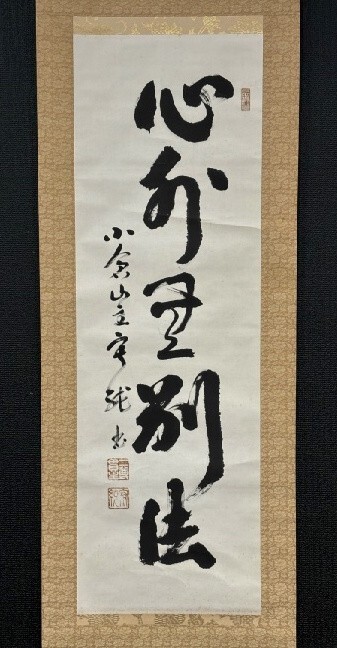 心外無別法
小倉山主寛純書